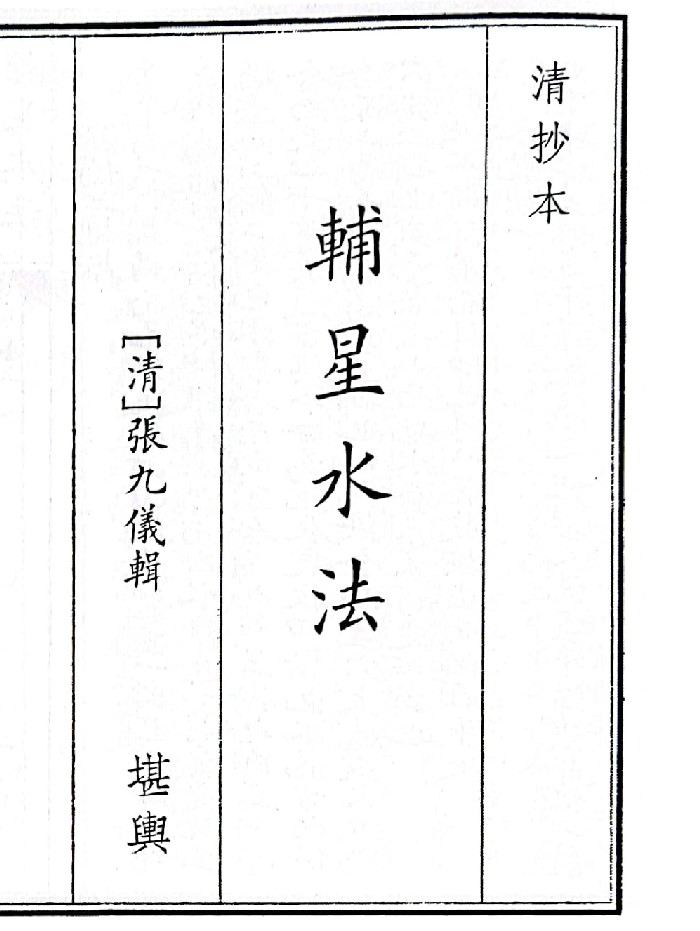 清抄本
輔星水法
[清]張九儀輯
堪輿